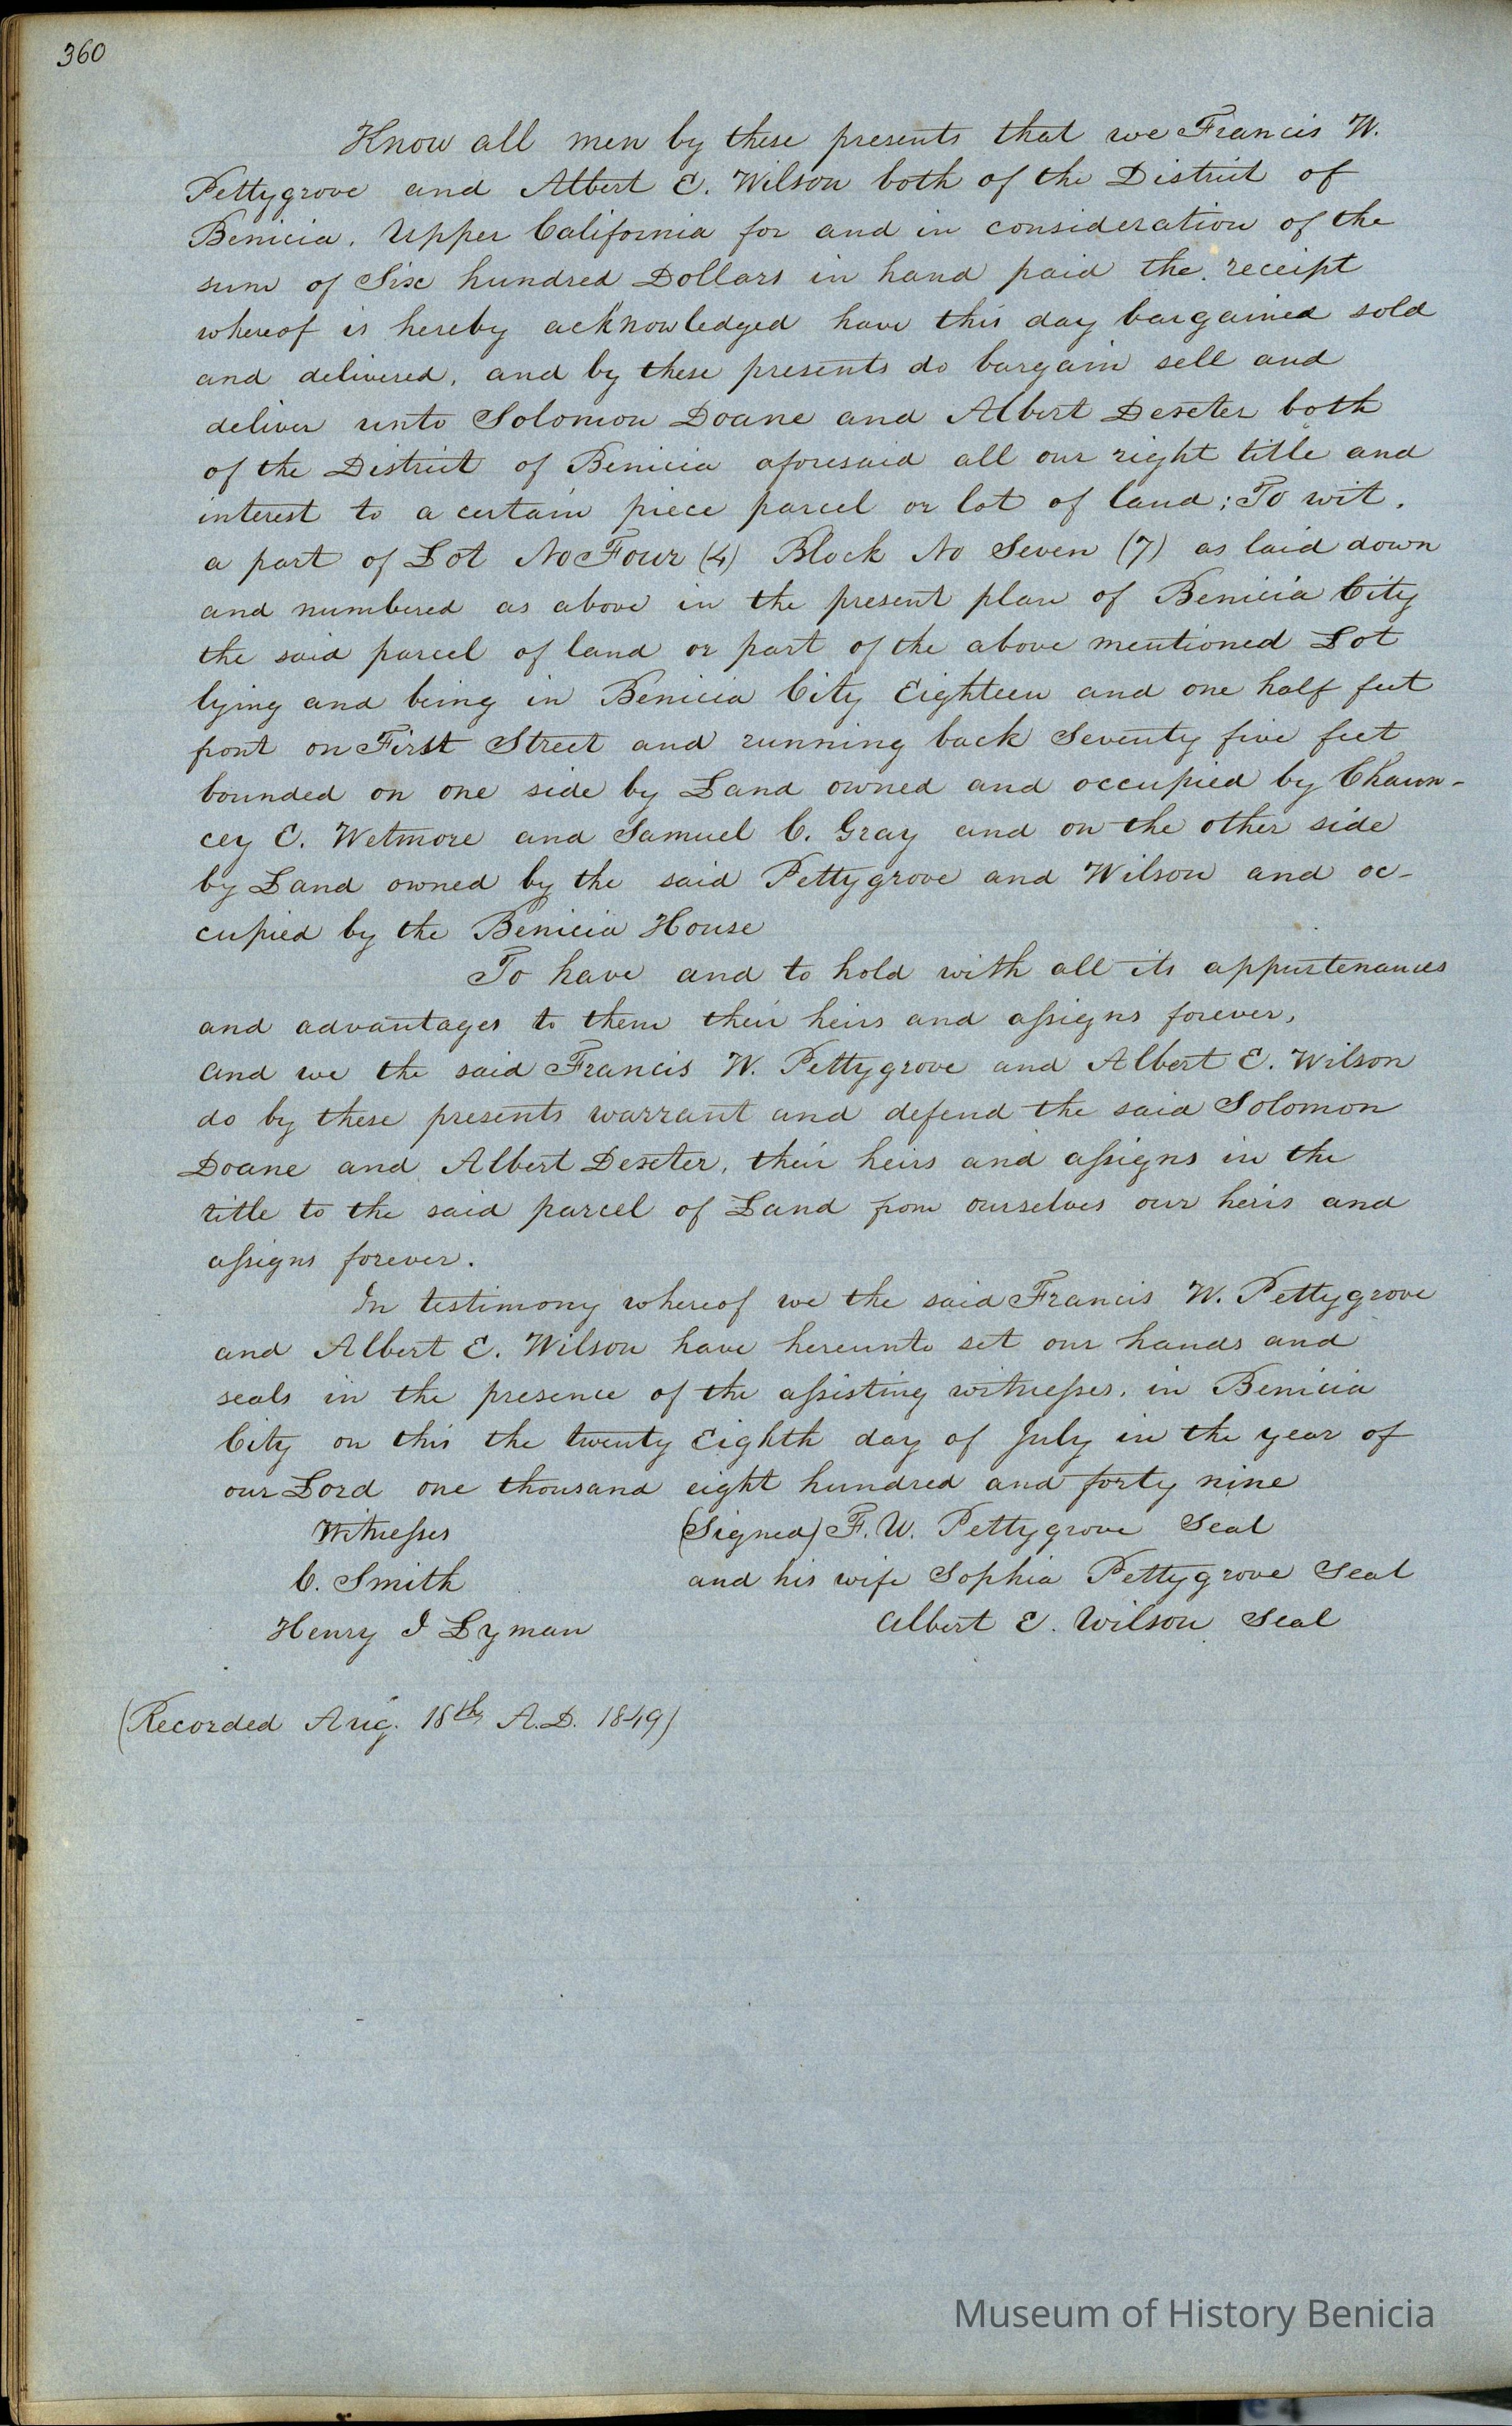 360
Know all men by these presents that we Francis W.
Pettygrove and Albert E. Wilson both of the District of
Benicia, Upper California for and in consideration of the
sum of Six hundred Dollars in hand paid the receipt
whereof is hereby acknowledged have this day bargained sold
and delivered, and by these presents do bargain sell and
deliver unto Solomon Doane and Albert Dexter both
of the District of Benicia aforesaid all our right title and
interest to a certain piece parcel or lot of land; To wit,
a part of Lot No Four (4) Block No Seven (7) as laid down
and numbered as above in the present plan of Benicia City
the said parcel of land or part of the above mentioned Lot
lying and being in Benicia City Eighteen and one half feet
front on First Street and running back Seventy five feet
bounded on one side by Land owned and occupied by Chaun-
cey E. Wetmore and Samuel C. Gray and on the other side
by Land owned by the said Pettygrove and Wilson and oc-
cupied by the Benicia House
To have and to hold with all its appurtenances
and advantages to them their heirs and assigns forever,
and we the said Francis W. Pettygrove and Albert E. Wilson
do by these presents warrant and defend the said Solomon
Doane and Albert Dexter, their heirs and assigns in the
title to the said parcel of Land from ourselves our heris and
assigns forever.
In testimony whereof we the said Francis W. Pettygrove
and Albert E. Wilson have hereunto set our hands and
seals in the presence of the assisting witnesses, in Benicia
City on this the twenty Eighth day of July in the year of
our Lord one thousand eight hundred and forty nine
Witnesses (Signed) F. W. Pettygrove Seal
C. Smith and his wife Sophia Pettygrove Seal
Henry I Lyman Albert E. Wilson Seal
(Recorded Aug. 18th A.D. 1849)
Museum of History Benicia